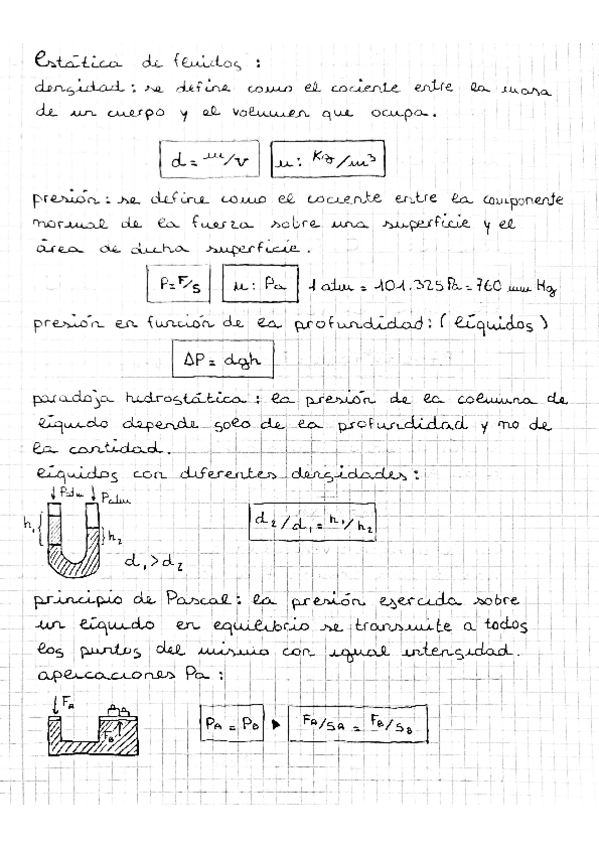 Estática de fluidos :
densidad : se define como el cociente entre la masa
de un cuerpo y el volumen que ocupa.
d = m/v u: Kg/m³
presión : se define como el cociente entre la componente
normal de la fuerza sobre una superficie y el
área de dicha superficie.
P = F/S u: Pa 1 atm = 101.325 Pa = 760 mm Hg
presión en función de la profundidad : (líquidos)
ΔP = dgh
paradoja hidrostática : la presión de la columna de
líquido depende solo de la profundidad y no de
la cantidad.
líquidos con diferentes densidades :
Patm Patm
h₁ h₂ d₂/d₁ = h₁/h₂
d₁ > d₂
principio de Pascal : la presión ejercida sobre
un líquido en equilibrio se transmite a todos
los puntos del mismo con igual intensidad.
aplicaciones Pa :
FA FB PA = PB ▶ FA/SA = FB/SB